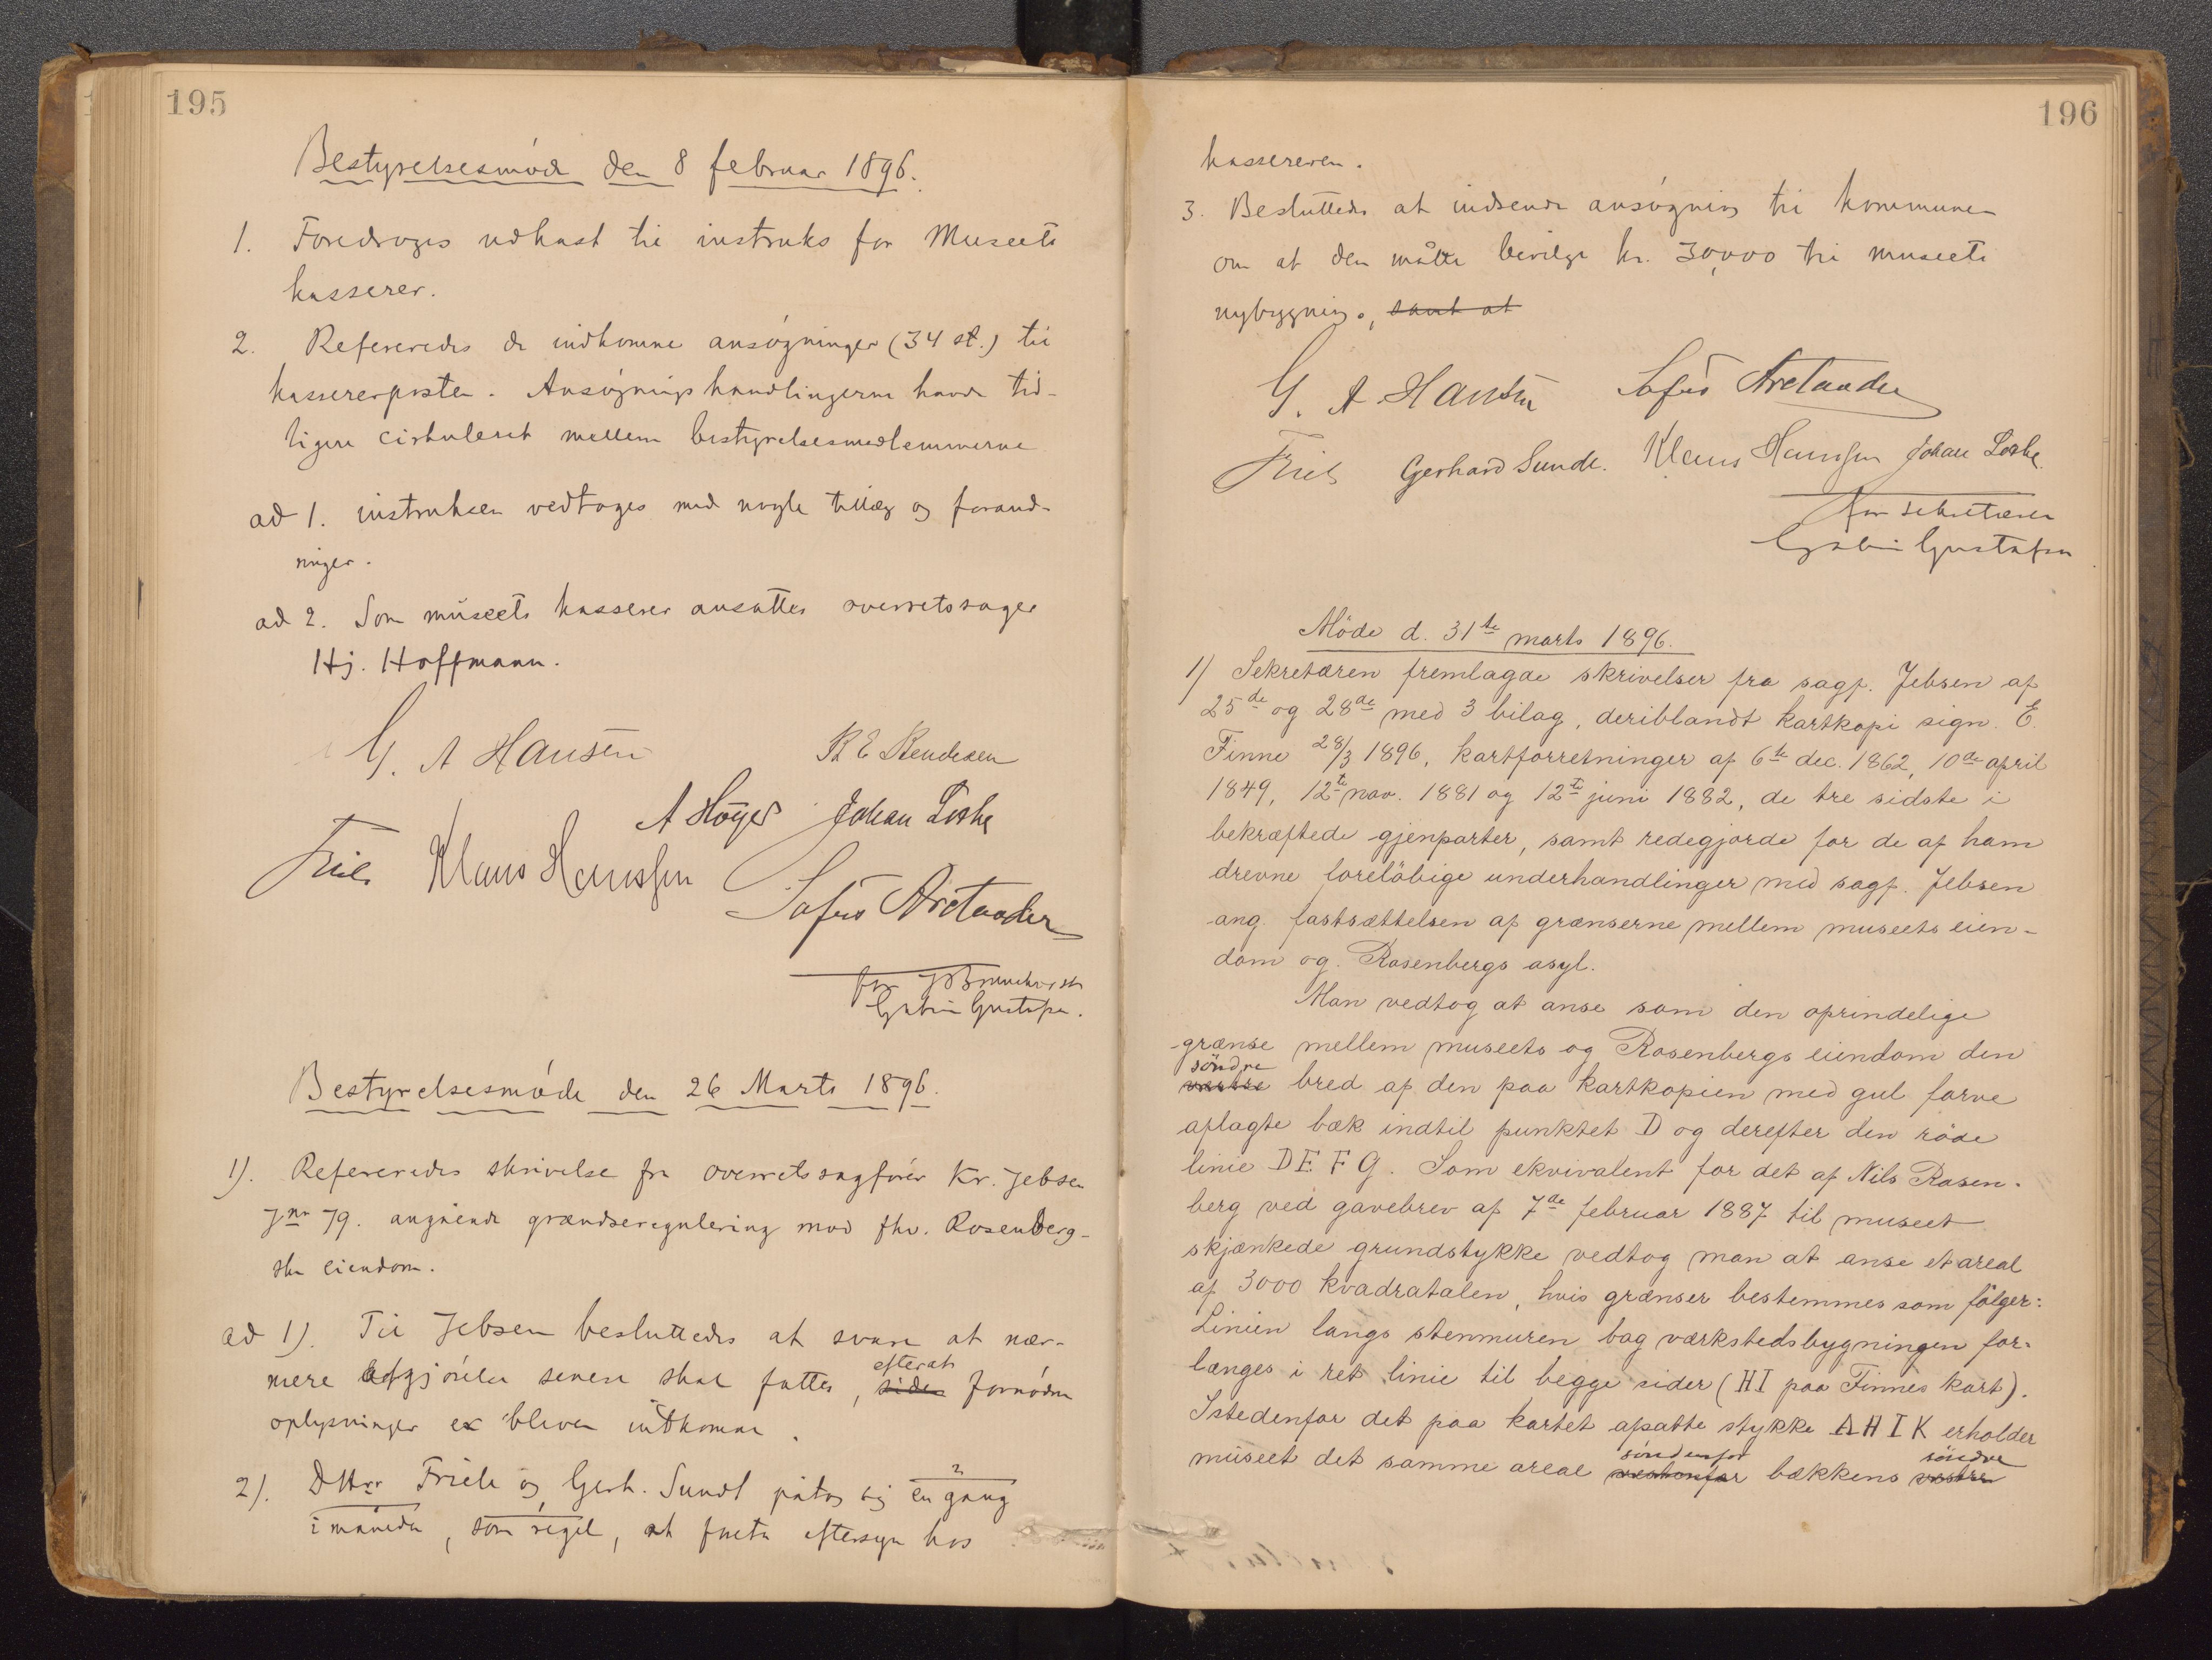 195
Bestyrelsesmöde den 8 februar 1896.
1. Foredroges udkast til instruks for Museets
kasserer.
2. Refereredes de indkomne ansøgninger (34 st.) til
kassererposten. Ansøgningshandlingerne havde tid-
ligere cirkuleret mellem bestyrelsesmedlemmerne
ad 1. instruksen vedtoges med nogle tillæg og forand-
ringer.
ad 2. Som museets kasserer ansattes overretssager
Hj. Hoffmann.
G. A Hansen
A Høyer Johan Losbe
Friele Klaus Hanssen
Sofus Arctander
for J Brunchorst
Gabriel Gustafson.
Bestyrelsesmöde den 26 Marts 1896.
1). Refereredes skrivelse fra overretssagfører Kr. Jebsen
Jnr 79. angående grændseregulering mod fhv. Rosenberg-
ske eiendom.
ad 1). Til Jebsen besluttedes at svare at nær-
mere afgjörelse senere skal fattes, siden efterat fornødne
oplysninger er bleven indkomne.
2). DHrr Friele og Gerh. Sundt påtog sig en gang
i måneden, som regel, at foreta eftersyn hos
196
kassereren.
3. Besluttedes at indsende ansøgning til kommunen
om at den måtte bevilge kr. 30,000 til museets
nybygning, samt at
G. A Hansen Sofus Arctander
Friele Gerhard Sundt. Klaus Hanssen Johan Losbe
for sekretæren
Gabriel Gustafson
Möde d. 31te marts 1896.
1) Sekretæren fremlagde skrivelser fra sagf. Jebsen af
25de og 28de med 3 bilag, deriblandt kartkopi sign. E.
Finne 28/3 1896, kartforretninger af 6te dec. 1862, 10de april
1849, 12te nov. 1881 og 12te juni 1882, de tre sidste i
bekræftede gjenparter, samt redegjorde for de af ham
drevne foreløbige underhandlinger med sagf. Jebsen
ang. fastsættelsen af grænserne mellem museets eien-
dom og Rosenbergs asyl.
Man vedtog at anse som den oprindelige
grænse mellem museets og Rosenbergs eiendom den
vestre söndre bred af den paa kartkopien med gul farve
aflagte bæk indtil punktet D og derefter den røde
linie DEFG. Som ekvivalent for det af Nils Rosen-
berg ved gavebrev af 7de februar 1887 til museet
skjænkede grundstykke vedtog man at anse et areal
af 3000 kvadratalen, hvis grænser bestemmes som følger:
Linien langs stenmuren bag værkstedsbygningen for-
længes i ret linie til begge sider (HI paa Finnes kart).
Istedenfor det paa kartet afsatte stykke AHIK erholder
museet det samme areal vestenfor söndenfor bækkens vestre söndre